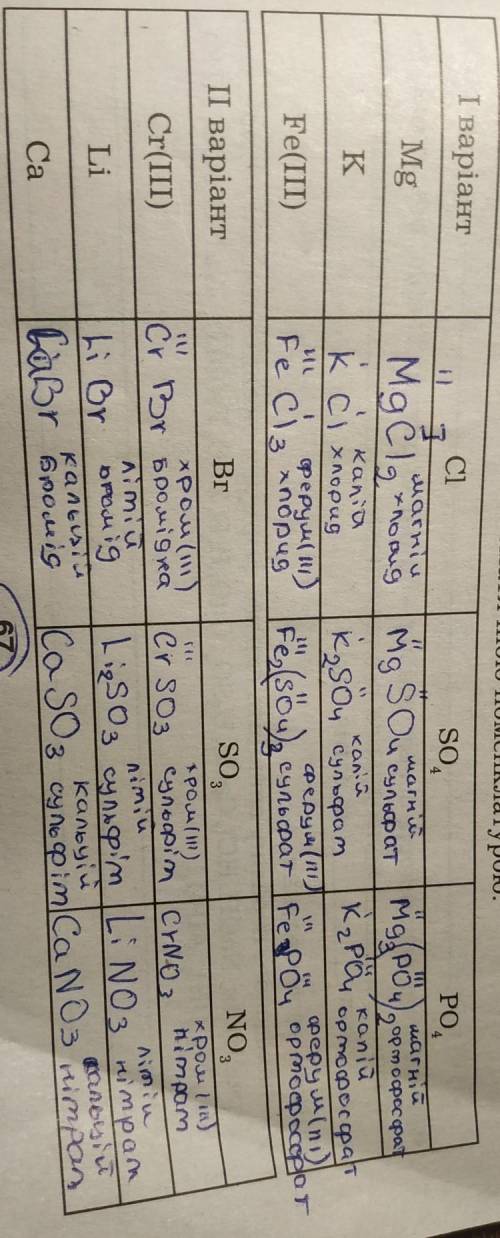 номенклатурою.
І варіант Cl SO₄ PO₄
Mg
II I
MgCl₂ магній хлорид
II II
MgSO₄ магній сульфат
II III
Mg₃(PO₄)₂ магній ортофосфат
K
I I
KCl калій хлорид
I II
K₂SO₄ калій сульфат
I III
K₂PO₄ калій ортофосфат
Fe(III)
III I
FeCl₃ ферум(III) хлорид
III II
Fe₂(SO₄)₃ ферум(III) сульфат
III III
FePO₄ ферум(III) ортофосфат
ІІ варіант Br SO₃ NO₃
Cr(III)
III
CrBr хром(III) бромідка
III
CrSO₃ хром(III) сульфіт
CrNO₃ хром(III) нітрат
Li
LiBr літій бромід
Li₂SO₃ літій сульфіт
LiNO₃ літій нітрат
Ca
CaBr кальцій бромід
CaSO₃ кальцій сульфіт
CaNO₃ кальцій нітрат
67